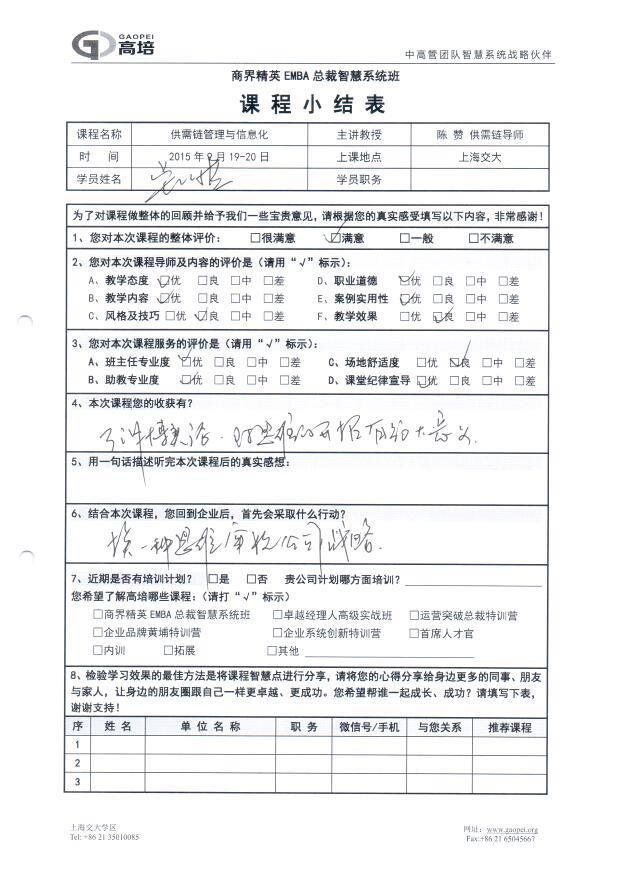 GAOPEI
高培
中高管团队智慧系统战略伙伴
商界精英 EMBA 总裁智慧系统班
课 程 小 结 表
课程名称 供需链管理与信息化 主讲教授 陈 赞 供需链导师
时 间 2015年9月19-20日 上课地点 上海交大
学员姓名 学员职务
为了对课程做整体的回顾并给予我们一些宝贵意见，请根据您的真实感受填写以下内容，非常感谢！
1、您对本次课程的整体评价： □很满意 ☑满意 □一般 □不满意
2、您对本次课程导师及内容的评价是（请用“√”标示）：
A、教学态度 ☑优 □良 □中 □差 D、职业道德 ☑优 □良 □中 □差
B、教学内容 ☑优 □良 □中 □差 E、案例实用性 ☑优 □良 □中 □差
C、风格及技巧 □优 ☑良 □中 □差 F、教学效果 □优 ☑良 □中 □差
3、您对本次课程服务的评价是（请用“√”标示）：
A、班主任专业度 ☑优 □良 □中 □差 C、场地舒适度 □优 ☑良 □中 □差
B、助教专业度 ☑优 □良 □中 □差 D、课堂纪律宣导 ☑优 □良 □中 □差
4、本次课程您的收获有？
5、用一句话描述听完本次课程后的真实感想：
6、结合本次课程，您回到企业后，首先会采取什么行动？
换一种思维审视公司战略.
7、近期是否有培训计划？ □是 □否 贵公司计划哪方面培训？
您希望了解高培哪些课程：（请打“√”标示）
□商界精英 EMBA 总裁智慧系统班 □卓越经理人高级实战班 □运营突破总裁特训营
□企业品牌黄埔特训营 □企业系统创新特训营 □首席人才官
□内训 □拓展 □其他
8、检验学习效果的最佳方法是将课程智慧点进行分享，请将您的心得分享给身边更多的同事、朋友
与家人，让身边的朋友圈跟自己一样更卓越、更成功。您希望帮谁一起成长、成功？请填写下表，
谢谢支持！
序 姓 名 单 位 名 称 职 务 微信号/手机 与您关系 推荐课程
1
2
3
上海交大学区 网址：www.gaopei.org
Tel: +86 21 35010085 Fax:+86 21 65045667